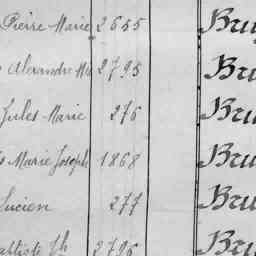 Pierre Marie 2655 Bru
Alexandre Ma 2795 Bru
Jules Marie 276 Bru
Marie Joseph 1868 Bru
Lucien 277 Bru
aptiste Jh 2796 Bru